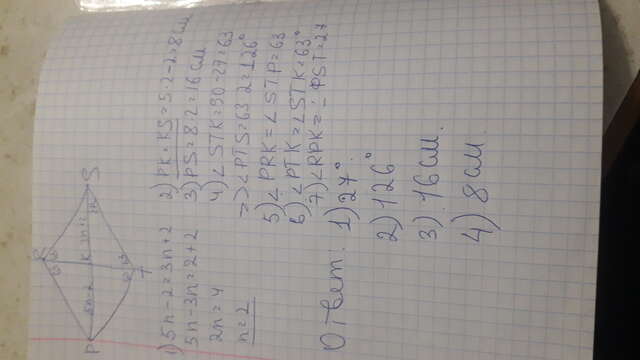 R
63 63
P 5n-2 K 3n+2 S
27
63 63
T
1) 5n-2=3n+2
5n-3n=2+2
2n=4
n=2
2) PK=KS=5·2-2=8см
3) PS=8·2=16см
4) ∠STK=90-27=63
=>∠PTS=63·2=126°
5) ∠PRK=∠STP=63
6) ∠PTK=∠STK=63°
7) ∠RPK=∠PST=27
Ответ: 1) 27°.
2) 126°
3) 16см.
4) 8см.